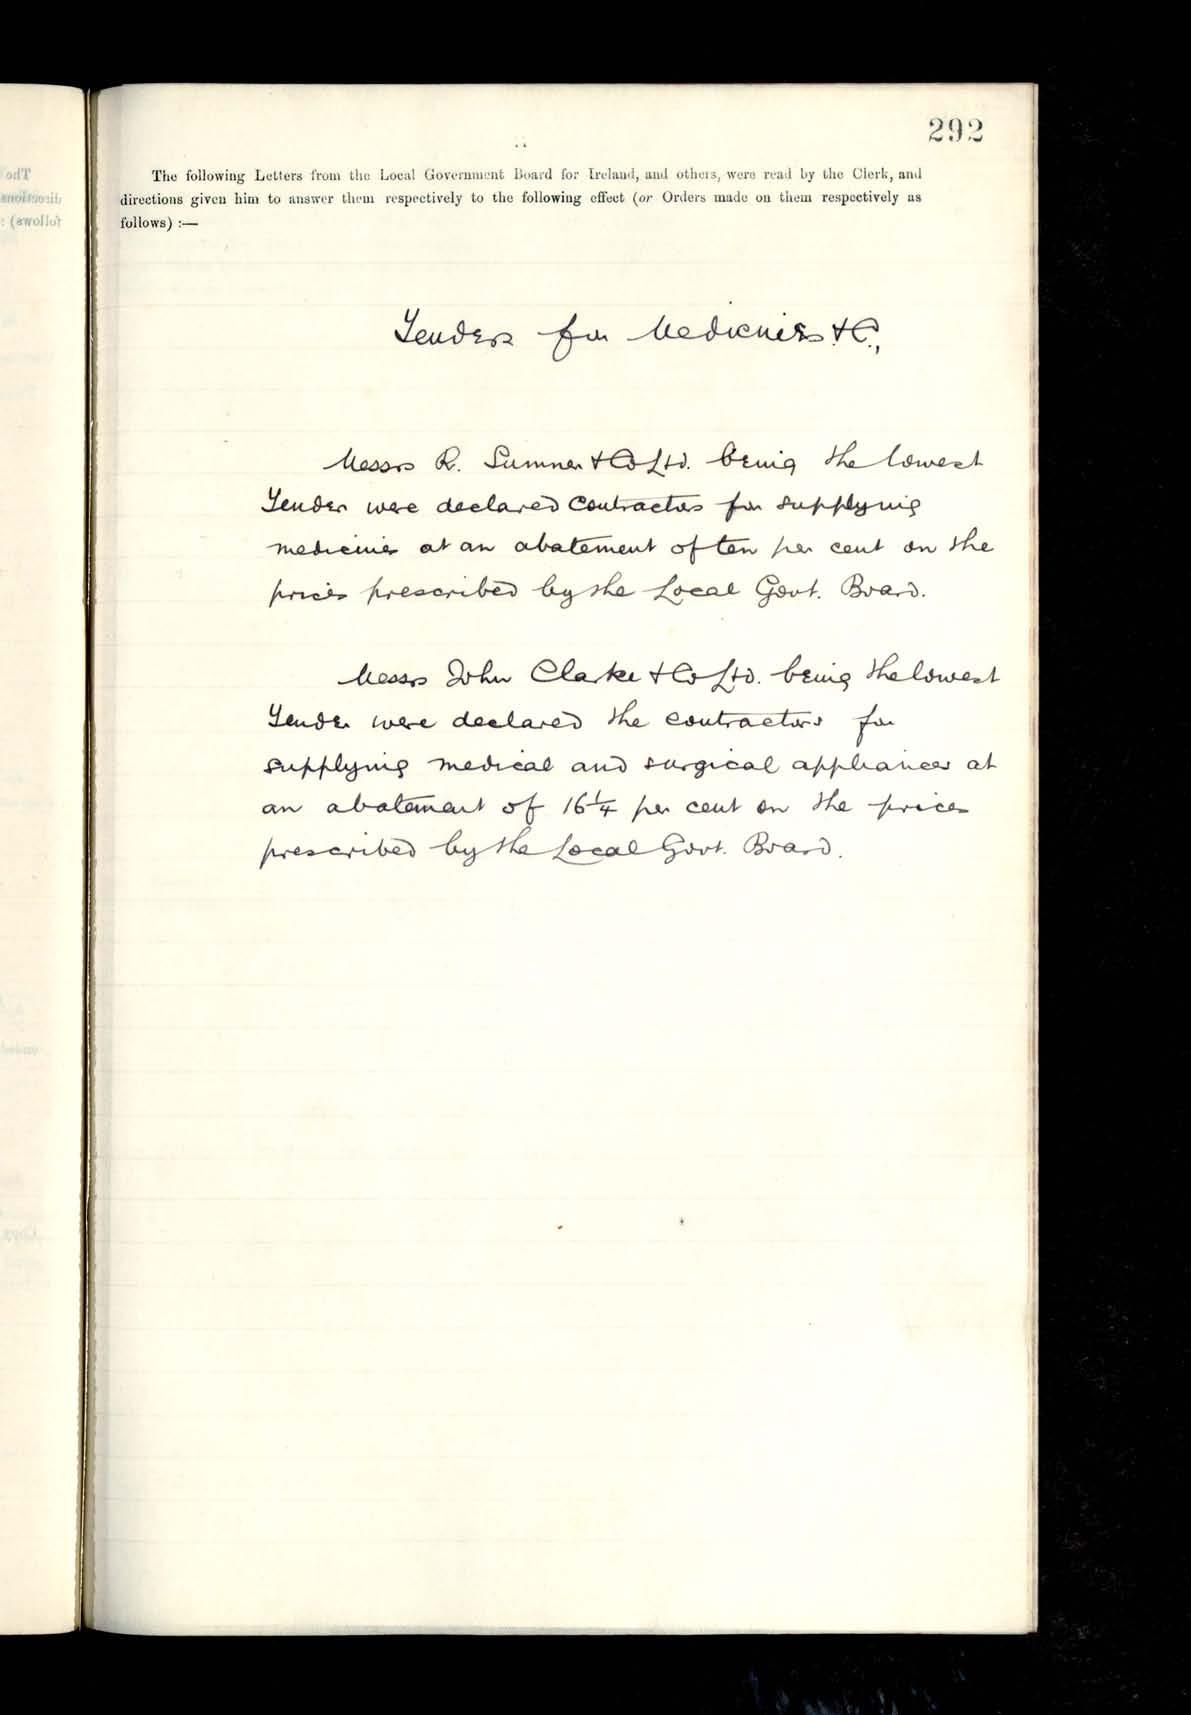 292
The following Letters from the Local Government Board for Ireland, and others, were read by the Clerk, and
directions given him to answer them respectively to the following effect (or Orders made on them respectively as
follows) :—
Tenders for Medicines &C.,
Messrs R. Sumner & Co Ltd. being the lowest
Tender were declared contractors for supplying
medicines at an abatement of ten per cent on the
prices prescribed by the Local Govt. Board.
Messrs John Clarke & Co Ltd. being the lowest
Tender were declared the contractors for
supplying medical and surgical appliances at
an abatement of 16 1/4 per cent on the prices
prescribed by the Local Govt. Board.